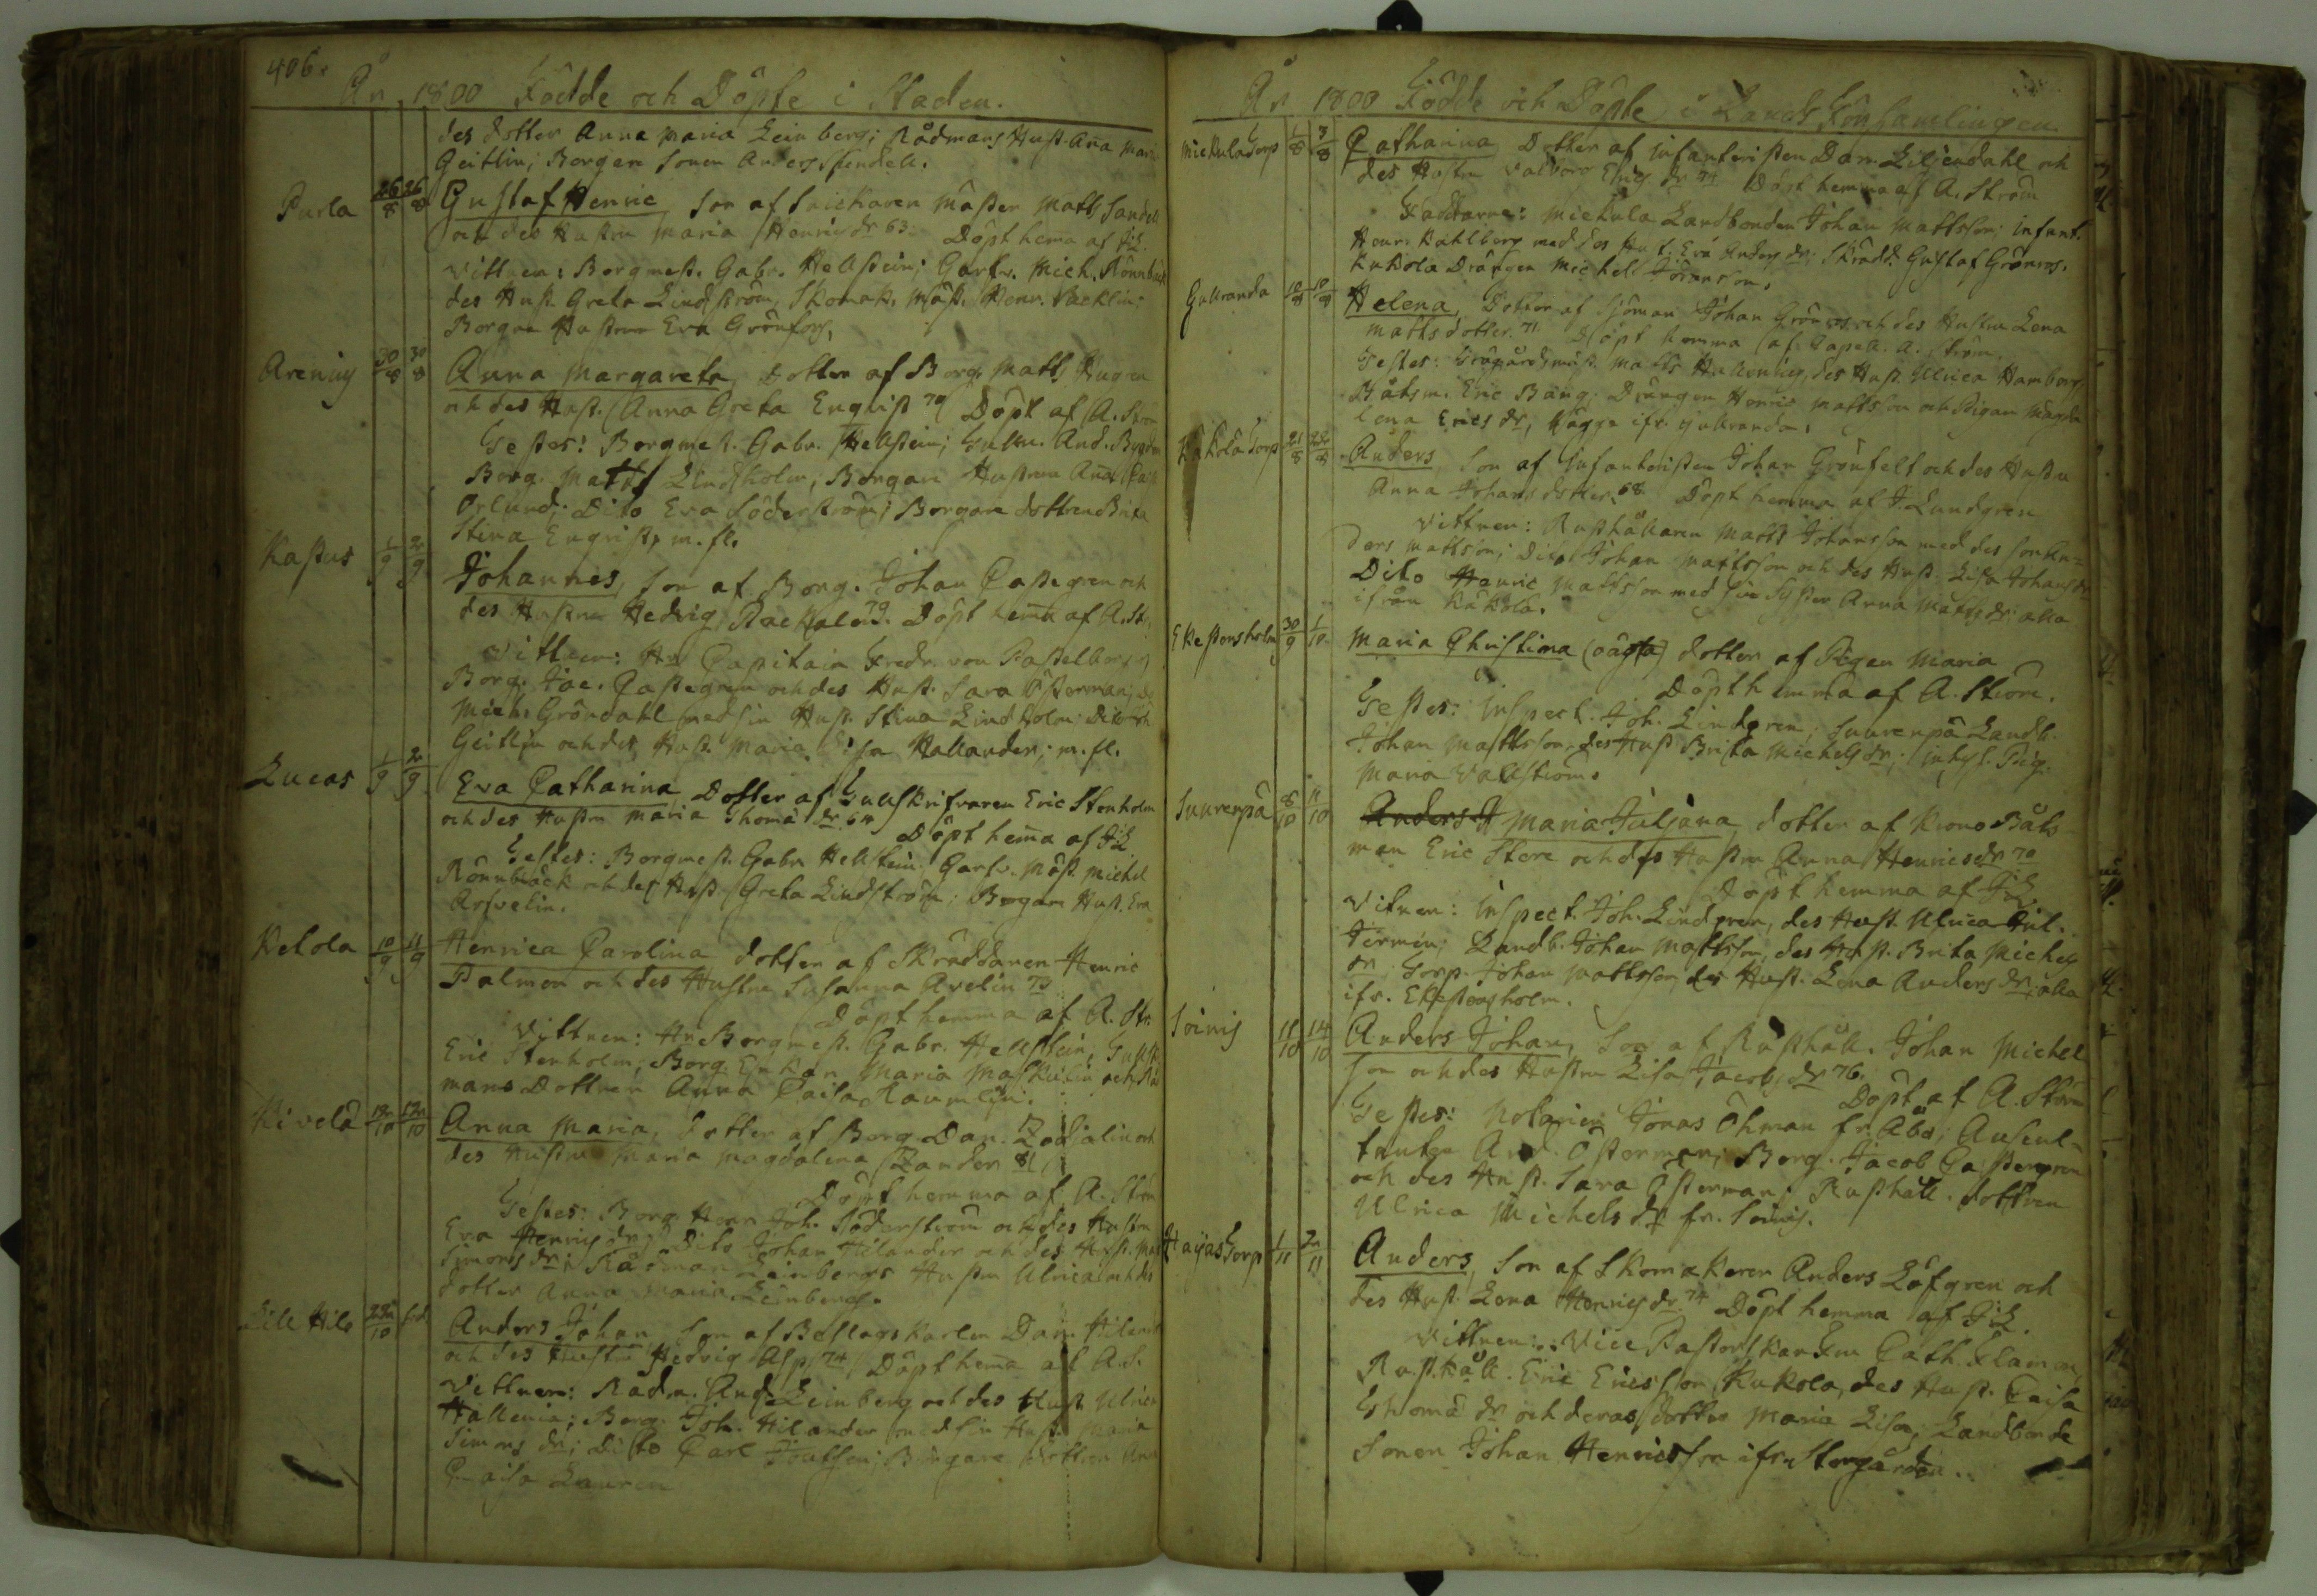 406.
År 1800 Födde och Döpte i Staden.
des dotter Anna Maria Leinberg; Rådmans Hust. Aña Maria
Geitlin; Borgare Sonen Anders Spendell.
Purla 26/8 26/8 Gustaf Henric Son af Snickaren Mäster Matts Sandell
och des Hustru Maria Henrics dr 63. Döpt hema af
Vittnen: Borgmest. Gabr. Hellstein; Garfv. Mich. Rönnbäck
des Hust. Greta Lindström, Skomak. Mäst. Henr. Packlin;
Borgare Hustrun Eva Grönfors,
Arenius 30/8 30/8 Anna Margareta, Dotter af Borg. Matts Hugren
och des Hust. Anna Greta Enqvist 70 Döpt af A. Ström
Testes: Borgmest. Gabr. Hellstein; And.
Borg. Matts Lindholm, Borgare Hustrun Aña Caisa
Orlund; Dito Eva Söderström; Borgare dottren Brita
Stina Enqvist, m. fl.
Kastus 1/9 2/9 Johannes, Son af Borg. Johan Castegren och
des Hustru Hedvig Rackala 79. Döpt hem̄a af A. St.
Vittnen: Hr Capitain Fredr. von
Borg. Jac. Castegren och des Hust. Sara Österman;
Mich. Gröndahl med sin Hust. Stina Lindholm; Dito
Geitlin och des Hust. Maria Lisa Hallander; m. fl.
Lucas 1/9 2/9 Eva Catharina Dotter af Tullskrifvaren Eric Stenholm
och des Hustru Maria Thomæ dr 64
Döpt hem̄a af
Testes: Borgmest. Gabr. Hellstein Garfv. Mäst. Michel
Rönnbäck och des Hust. Greta Lindström; Borgare Hust. Eva
Arfvelin.
Ketola 10/9 11/9 Henrica Carolina dotter af Skräddaren Henric
Palmen och des Hustru Susanna Avelin 73
Döpt hemma af A. Str.
Vittnen: Hr Borgmest. Gabr. Hellstein; Tullsk.
Eric Stenholm; Borg. Enkan Maria Maskulin och
mans Dottren Anna Caisa Raumlin.
Kivelä 12/10 12/10 Anna Maria, Dotter af Borg. Dan. och
des Hustru Maria Magdalena Zander
Döpt hemma af A. Ström
Testes: Borg. Herr Joh. Söderström och des Hustru
Eva Henrics dr; Dito Johan Hilander och des Hust. Maria
Simons dr; Rådman Leinbergs Hustru Ulrica och des
dotter Anna Maria Leinberg.
Lill Hilo 22/10 Anders Johan Son af Dan. Hilander
och des Hustru Hedvig Alp 74 Döpt hem̄a af A. S.
Vittnen: Rådm. And. Leinberg och des Hust Ulrica
Hallenia; Borg. Joh. Hilander med sin Hust. Maria
Simons dr; Dito Carl; Borgare dottren
Caisa Lauren
År 1800 Födde och Döpte i Lands Församlingen.
Mickula Torp 1/8 3/8 Catharina Dotter af Infanteristen Dan. Liljendahl och
des Hustru Valborg Erics dr 74 Döpt hemma af A. Ström
Faddrarne: Mickula Landbonden Johan Mattsson; Infant.
Henr. Kahlberg med des Hust. Eva Anders dr; Skrädd. Gustaf Grönros.
Kukola Drängen Michel Göransson,
Gullranda 10/8 10/8 Helena, Dotter af Sjöman Johan Grönros och des Hustru Lena
Mattsdotter 71 Döpt hemma af Capell. A. Ström.
Testes: Trägårdsmäst. Matts, des Hust. Ulrica Hamberg;
Båtsm. Eric Bång; Drängen Henric Mattsson och Pigan Magda
lena Erics dr, bägge ifr. Gullranda.
Kukola Torp 21/8 22/8 Anders Son af Infanteristen Johan Grönfelt och des Hustru
Anna Johans dotter 68 Döpt hemma af J. Lundgren
Vittnen: Rusthållaren Matts Johansson med des Son An=
ders Mattsson; Dito Johan Mattsson och des Hust. Lisa Johans dr
Dito Henric Mattsson med sin Syster Anna Matts dr: alla
ifrån Kukola.
Ekestensholm 30/9 1/10 Maria Christina (oägta) dotter af Pigan Maria
Döpt hemma af A. Ström.
Testes: Inspect. Joh. Lindgren; Suurenpä Landb.
Johan Mattsson, des Hust Brita Michels dr; Inhys. Pig.
Maria Vallström.
Suurenpä 8/10 11/10 Maria Juliana dotter af Krono Båts-
man Eric Stere och des Hustru Anna Henrics dr 70
Döpt hemma af
Vitnen: Inspect. Joh. Lindgren, des Hust. Ulrica
Landb. Johan Mattsson, des Hust. Brita Michels
dr Torp. Johan Mattsson des Hust. Lena Anders dr; alla
ifr. Ekestensholm.
Soinis 11/10 14/10 Anders Johan, Son af Rusthåll. Johan Michel
son och des Hustru Lisa Jacobs dr 76.
Döpt af A. Ström
Testes: Notarien Jonas Öhman fr. Åbo; Auscul-
tanten And. Österman; Borg. Jacob Castegren
och des Hust. Sara Österman; Rusthåll. dottren
Ulrica Michels dr fr. Soinis.
Hayas Torp 1/11 2/11 Anders, Son af Skomakeren Anders Löfgren och
des Hust. Lena Henrics dr 74 Döpt hemma af
Vittnen: Vice Pastorskan Fru Cath.
Rusthåll. Eric Ericsson, Kukola, des Hust. Caisa
Thomæ dr och deras dotter Maria Lisa; Landbonde
Sonen Johan Henricsson ifr. Storgården.